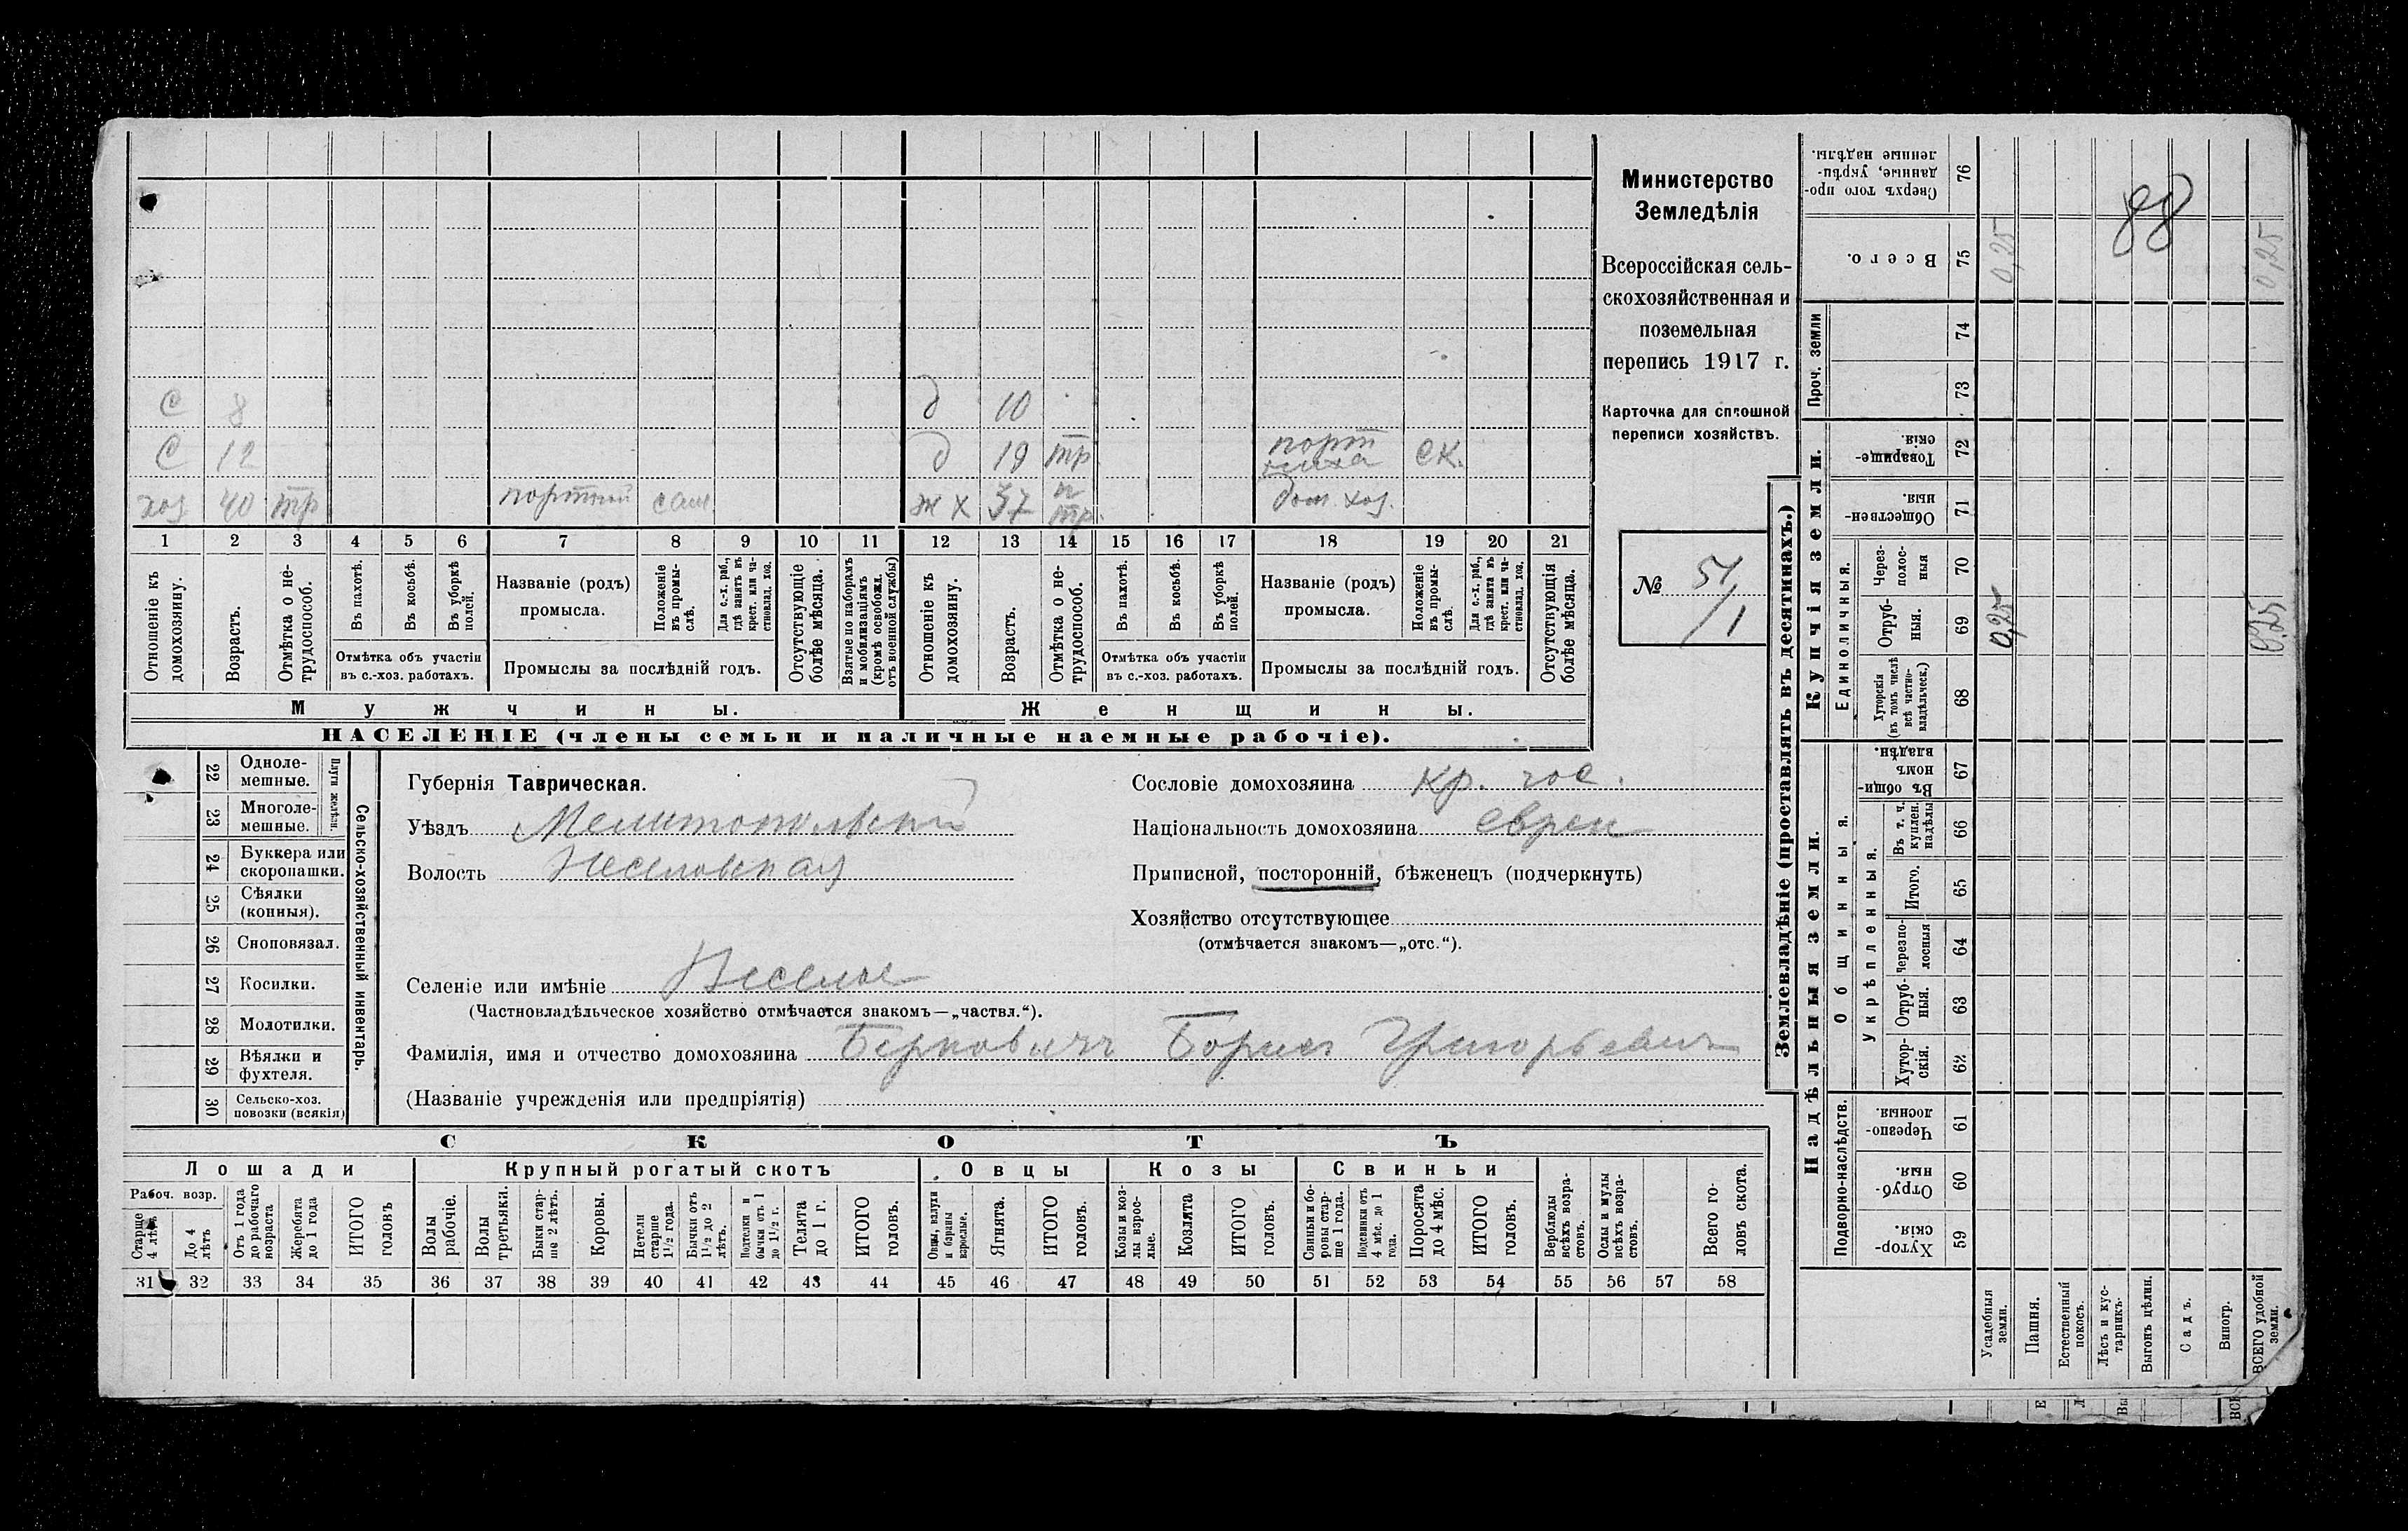 Министерство
Земледѣлія
Всероссійская сель-
скохозяйственная и
поземельная
перепись 1917 г.
Карточка для сплошной
переписи хозяйствъ.
№ 51/1
88
С 8 д 10
С 12 д 19 тр портниха ск.
хоз 40 тр портной сам. ж х 37 п тр. дом. хоз.
1 2 3 4 5 6 7 8 9 10 11 12 13 14 15 16 17 18 19 20 21
Отношеніе къ домохозяину.
Возрастъ.
Отмѣтка о не-трудоспособ.
Въ пахотѣ.
Въ косьбѣ.
Въ уборкѣ полей.
Отмѣтка объ участіи
въ с.-хоз. работахъ.
Названіе (родъ)
промысла.
Положеніе въ промы-слѣ.
Для с.-х. раб., гдѣ занятъ въ крест. или ча-стновлад. хоз.
Промыслы за послѣдній годъ.
Отсутствующіе болѣе мѣсяца.
Взятые по наборамъ и мобилизаціямъ (кромѣ освобожд. отъ военной службы)
Отношеніе къ домохозяину.
Возрастъ.
Отмѣтка о не-трудоспособ.
Въ пахотѣ.
Въ косьбѣ.
Въ уборкѣ полей.
Отмѣтка объ участіи
въ с.-хоз. работахъ.
Названіе (родъ)
промысла.
Положеніе въ промы-слѣ.
Для с.-х. раб., гдѣ занята въ крест. или ча-стновлад. хоз.
Промыслы за послѣдній годъ.
Отсутствующія болѣе мѣсяца.
Мужчины.
Женщины.
НАСЕЛЕНІЕ (члены семьи и наличные наемные рабочіе).
Сельско-хозяйственный инвентарь.
Плуги желѣзн.
22 Одноле-мешные.
23 Многоле-мешные.
24 Буккера или скоропашки.
25 Сѣялки (конныя).
26 Сноповязал.
27 Косилки.
28 Молотилки.
29 Вѣялки и фухтеля.
30 Сельско-хоз. повозки (всякія)
Губернія Таврическая.
Уѣздъ Мелитопольскій
Волость Веселовская
Сословіе домохозяина кр. гос.
Національность домохозяина еврей
Приписной, посторонній, бѣженецъ (подчеркнуть)
Хозяйство отсутствующее
(отмѣчается знакомъ—„отс.“).
Селеніе или имѣніе Веселое
(Частновладѣльческое хозяйство отмѣчается знакомъ—„частвл.“).
Фамилія, имя и отчество домохозяина Берковичъ Борисъ Григорьевич
(Названіе учрежденія или предпріятія)
СКОТЪ
Лошади
Крупный рогатый скотъ
Овцы
Козы
Свиньи
Рабоч. возр.
Старше 4 лѣтъ
До 4 лѣтъ
Отъ 1 года до рабочаго возраста
Жеребята до 1 года
ИТОГО головъ
Волы рабочіе.
Волы третьяки.
Быки стар-ше 2 лѣтъ.
Коровы.
Нетели старше 1½ года.
Бычки отъ 1½ до 2 лѣтъ.
Подтелки и бычки отъ 1 до 1½ г.
Телята до 1 г.
ИТОГО головъ.
Овцы, валухи и бараны взрослые.
Ягнята.
ИТОГО головъ.
Козы и коз-лы взрос-лые.
Козлята
ИТОГО головъ.
Свиньи и бо-ровы стар-ше 1 года.
Подсвинки отъ 4 мѣс. до 1 года.
Поросята до 4 мѣс.
ИТОГО головъ.
Верблюды всѣхъ возра-стовъ.
Ослы и мулы всѣхъ возра-стовъ.
Всего го-ловъ скота.
31 32 33 34 35 36 37 38 39 40 41 42 43 44 45 46 47 48 49 50 51 52 53 54 55 56 57 58
Землевладѣніе (проставлять въ десятинахъ.)
Надѣльныя земли.
Купчія земли.
Проч. земли
Подворно-наслѣдств.
Общинныя.
Укрѣпленныя.
Единоличныя.
Сверхъ того про-данные, укрѣп-ленные надѣлы. 76
Всего. 75 0,25 0,25
74
73
Товарище-скія. 72
Обществен-ныя. 71
Через-полос-ныя 70
Отруб-ныя. 69 0,25 0,25
Хуторскія (въ томъ числѣ всѣ частно-владѣльческ.) 68
Въ общин-номъ владѣн. 67
Въ т. ч. куплен. надѣлы 66
Итого. 65
Черезпо-лосныя 64
Отруб-ныя. 63
Хутор-скія. 62
Черезпо-лосныя. 61
Отруб-ныя. 60
Хутор-скія. 59
Усадебныя земли.
Пашня.
Естественный покосъ.
Лѣсъ и кус-тарникъ.
Выгонъ цѣлин.
Садъ.
Виногр.
ВСЕГО удобной земли.